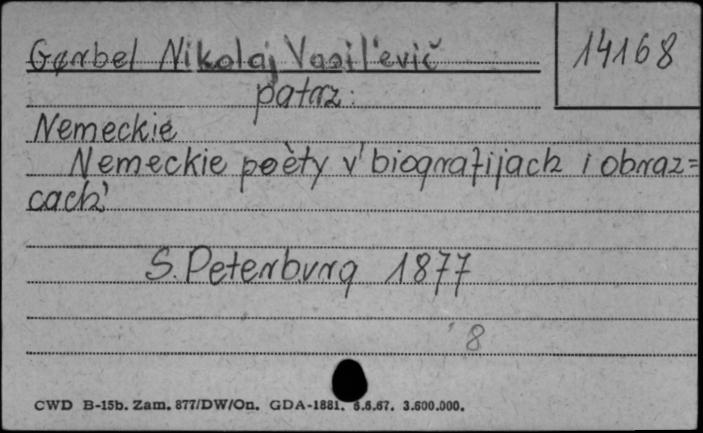 Gerbel Nikolaj Vasil'evič
14168
patrz:
Nemeckie
Nemeckie poèty v' biografijach i obraz=
cach'
S. Peterburg 1877
8
CWD B-15b. Zam. 877/DW/On. GDA-1881. 6.5.67. 3.600.000.